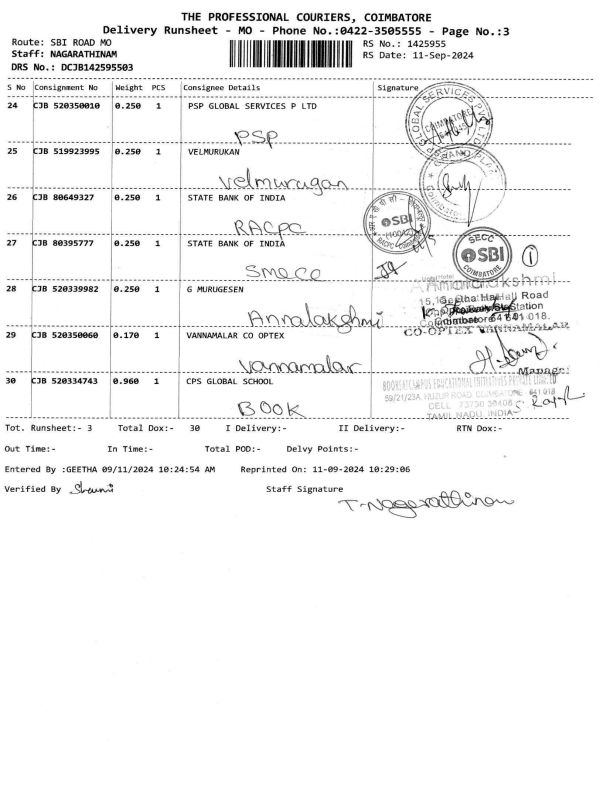 THE PROFESSIONAL COURIERS, COIMBATORE
Delivery Runsheet - MO - Phone No.:0422-3505555 - Page No.:3
Route: SBI ROAD MO RS No.: 1425955
Staff: NAGARATHINAM RS Date: 11-Sep-2024
DRS No.: DCJB142595503
S No Consignment No Weight PCS Consignee Details Signature
24 CJB 520350010 0.250 1 PSP GLOBAL SERVICES P LTD
PSP
25 CJB 519923995 0.250 1 VELMURUKAN
Velmurugan
26 CJB 80649327 0.250 1 STATE BANK OF INDIA
RACPC
SBI
27 CJB 80395777 0.250 1 STATE BANK OF INDIA
SMECC
SECC
SBI
COIMBATORE
1
28 CJB 520339982 0.250 1 G MURUGESEN
Annalakshmi
29 CJB 520350060 0.170 1 VANNAMALAR CO OPTEX
Vannamalar
CO-OPTEX VANNAMALAR
Manager
30 CJB 520334743 0.960 1 CPS GLOBAL SCHOOL
BOOK
TAMIL NADU, INDIA
Tot. Runsheet:- 3 Total Dox:- 30 I Delivery:- II Delivery:- RTN Dox:-
Out Time:- In Time:- Total POD:- Delvy Points:-
Entered By :GEETHA 09/11/2024 10:24:54 AM Reprinted On: 11-09-2024 10:29:06
Verified By Staff Signature
T-Nagarathinam